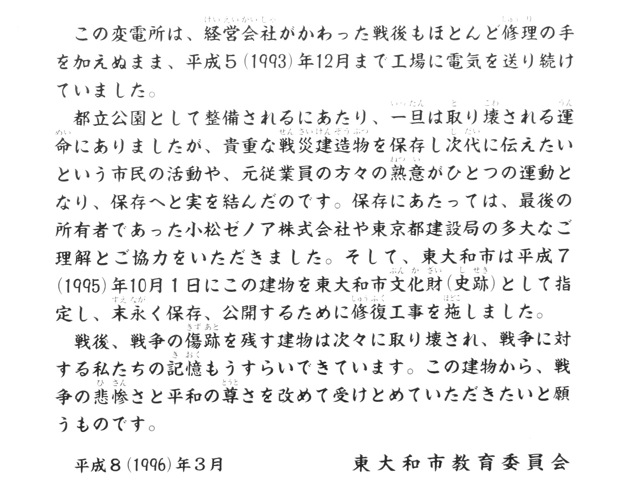 この変電所は、経営会社がかわった戦後もほとんど修理の手
を加えぬまま、平成5(1993)年12月まで工場に電気を送り続け
ていました。
都立公園として整備されるにあたり、一旦は取り壊される運
命にありましたが、貴重な戦災建造物を保存し次代に伝えたい
という市民の活動や、元従業員の方々の熟意がひとつの運動と
なり、保存へと実を結んだのです。保存にあたっては、最後の
所有者であった小松ゼノア株式会社や東京都建設局の多大なご
理解とご協力をいただきました。そして、東大和市は平成7
(1995)年10月1日にこの建物を東大和市文化財(史跡)として指
定し、末永く保存、公開するために修復工事を施しました。
戦後、戦争の傷跡を残す建物は次々に取り壊され、戦争に対
する私たちの記憶もうすらいできています。この建物から、戦
争の悲惨さと平和の尊さを改めて受けとめていただきたいと願
うものです。
平成8(1996)年3月 東大和市教育委員会